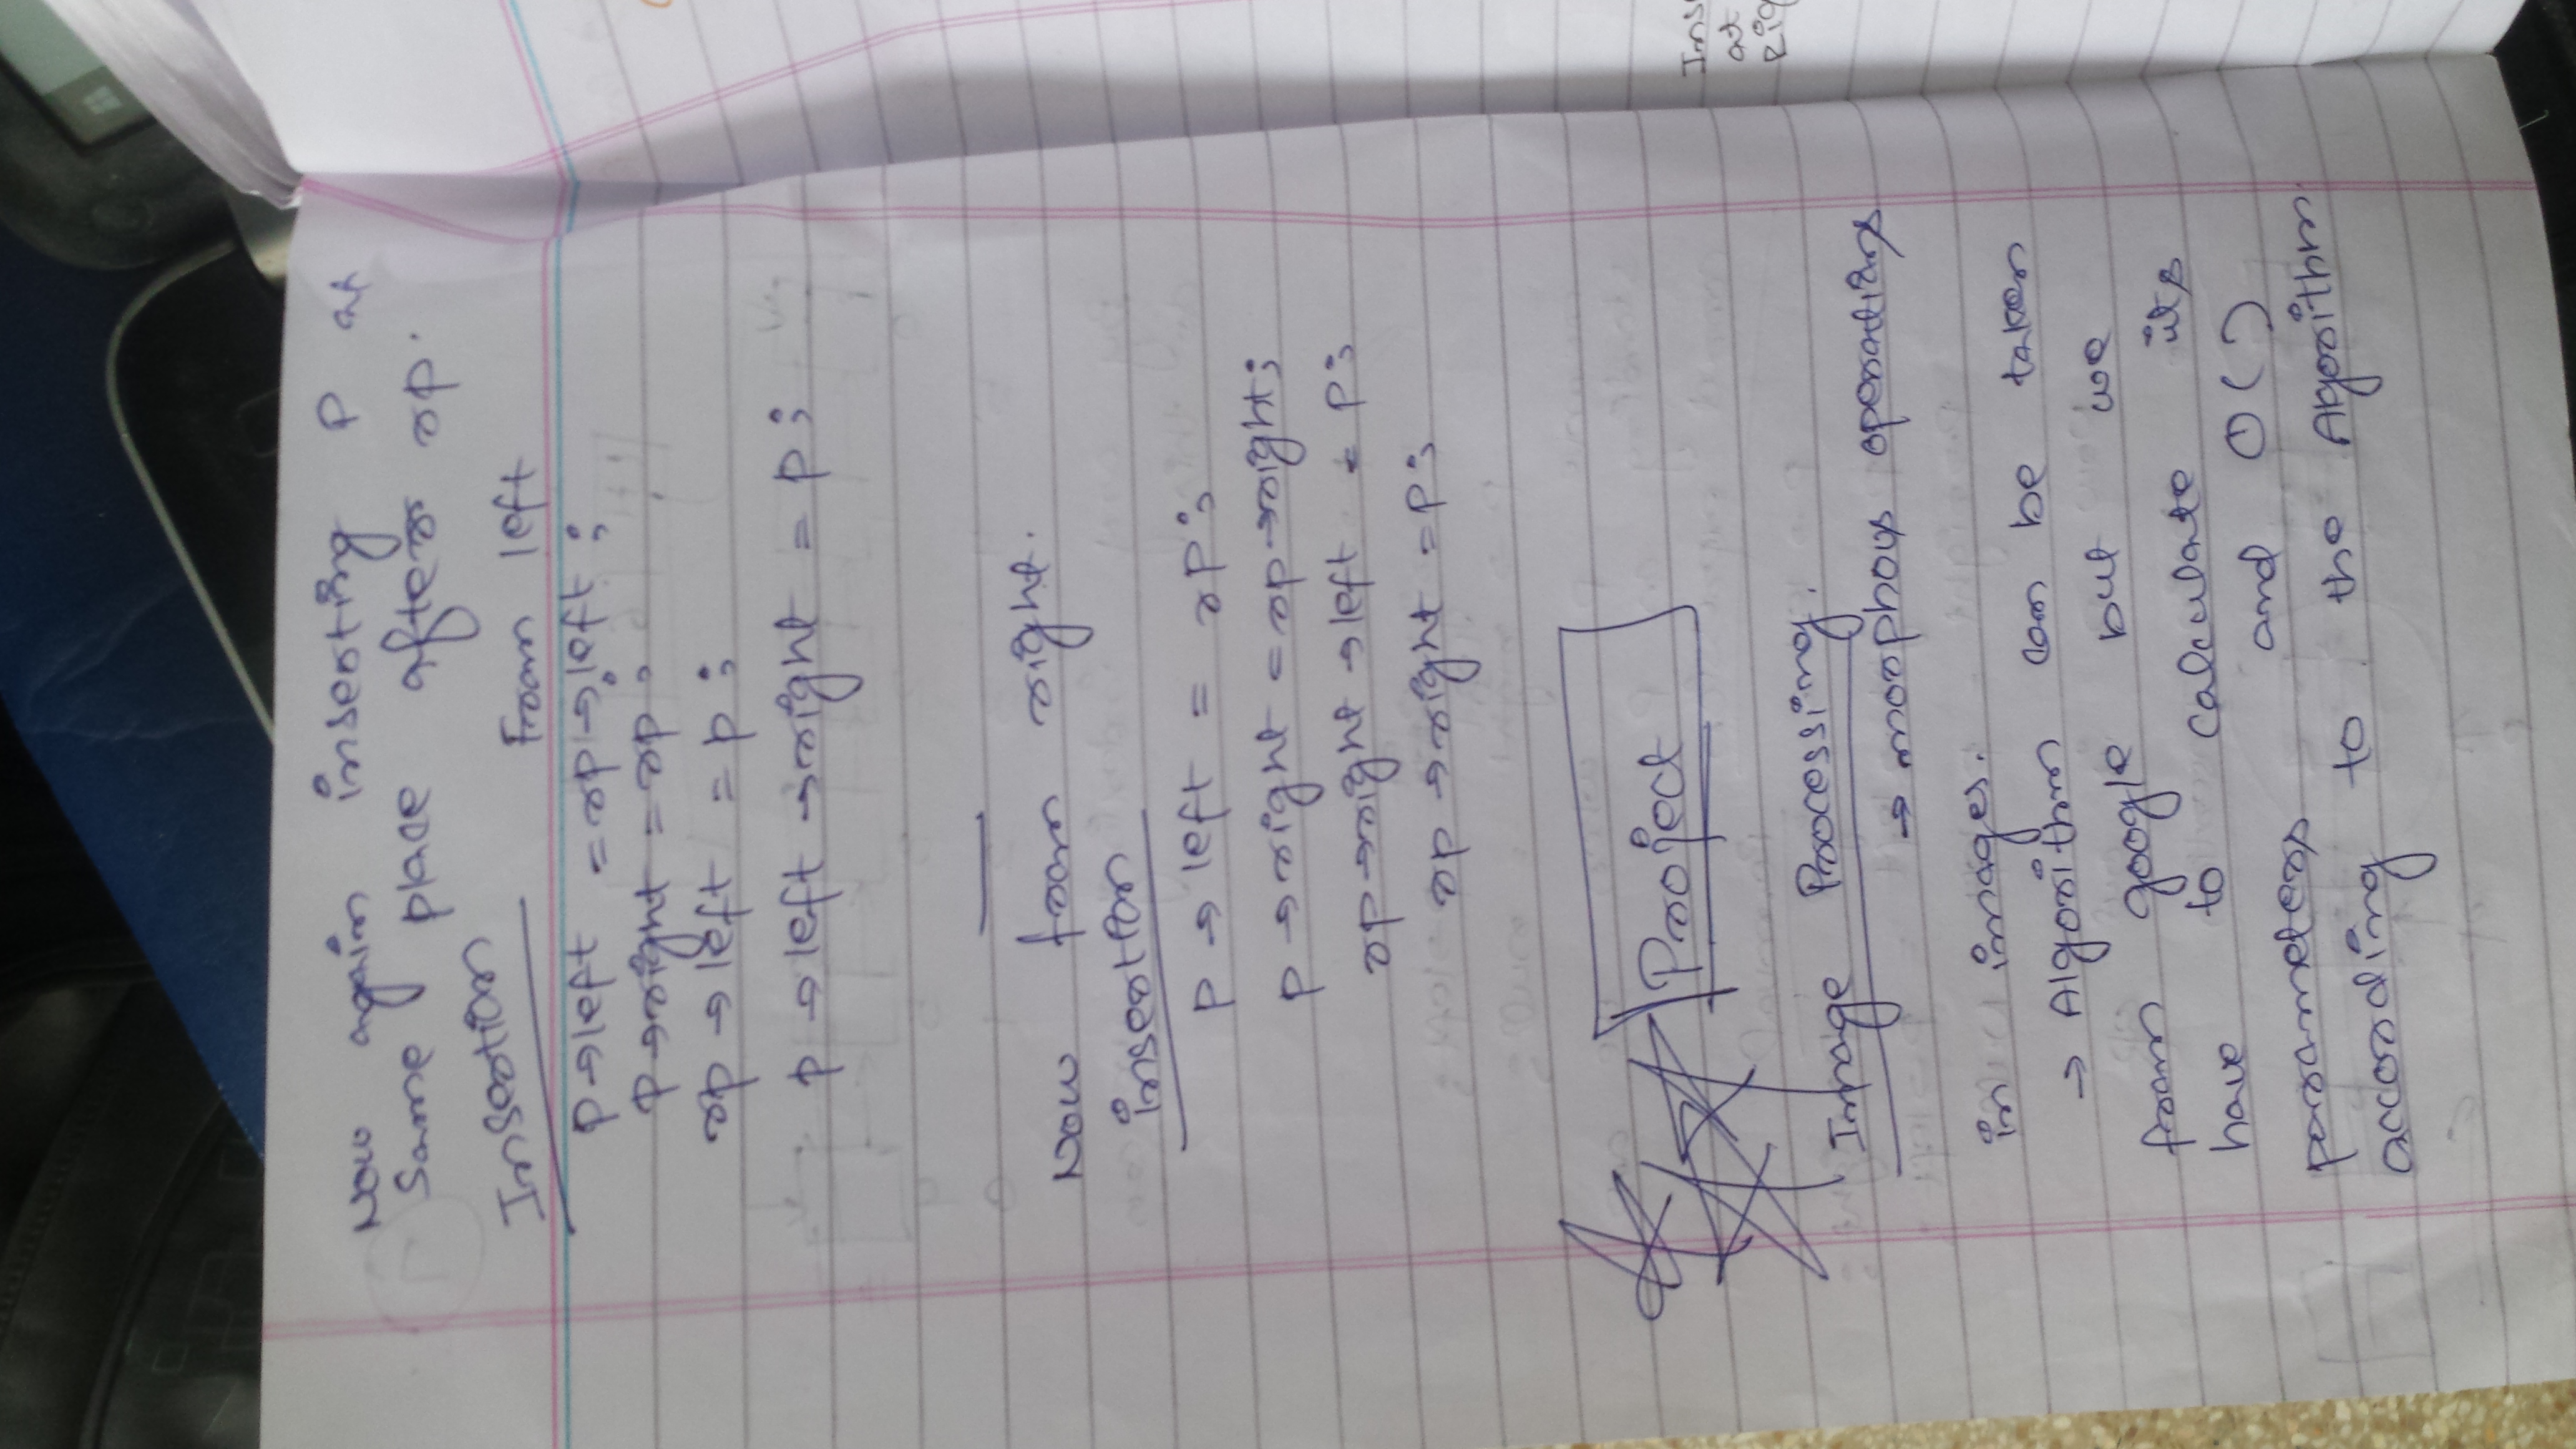 Now again inserting P at
same place after rp.
Insertion From left
p→left = rp→left ;
p→right = rp ;
rp→left = p ;
p→left→right = p ;
Now from right.
insertion
p→left = rp ;
p→right = rp→right ;
rp→right→left = p ;
rp→right = p ;
Project
Image Processing.
→ morphous operations
in images.
→ Algorithm can be taken
from google but we
have to calculate its
parameters and O( )
according to the Algorithm
at